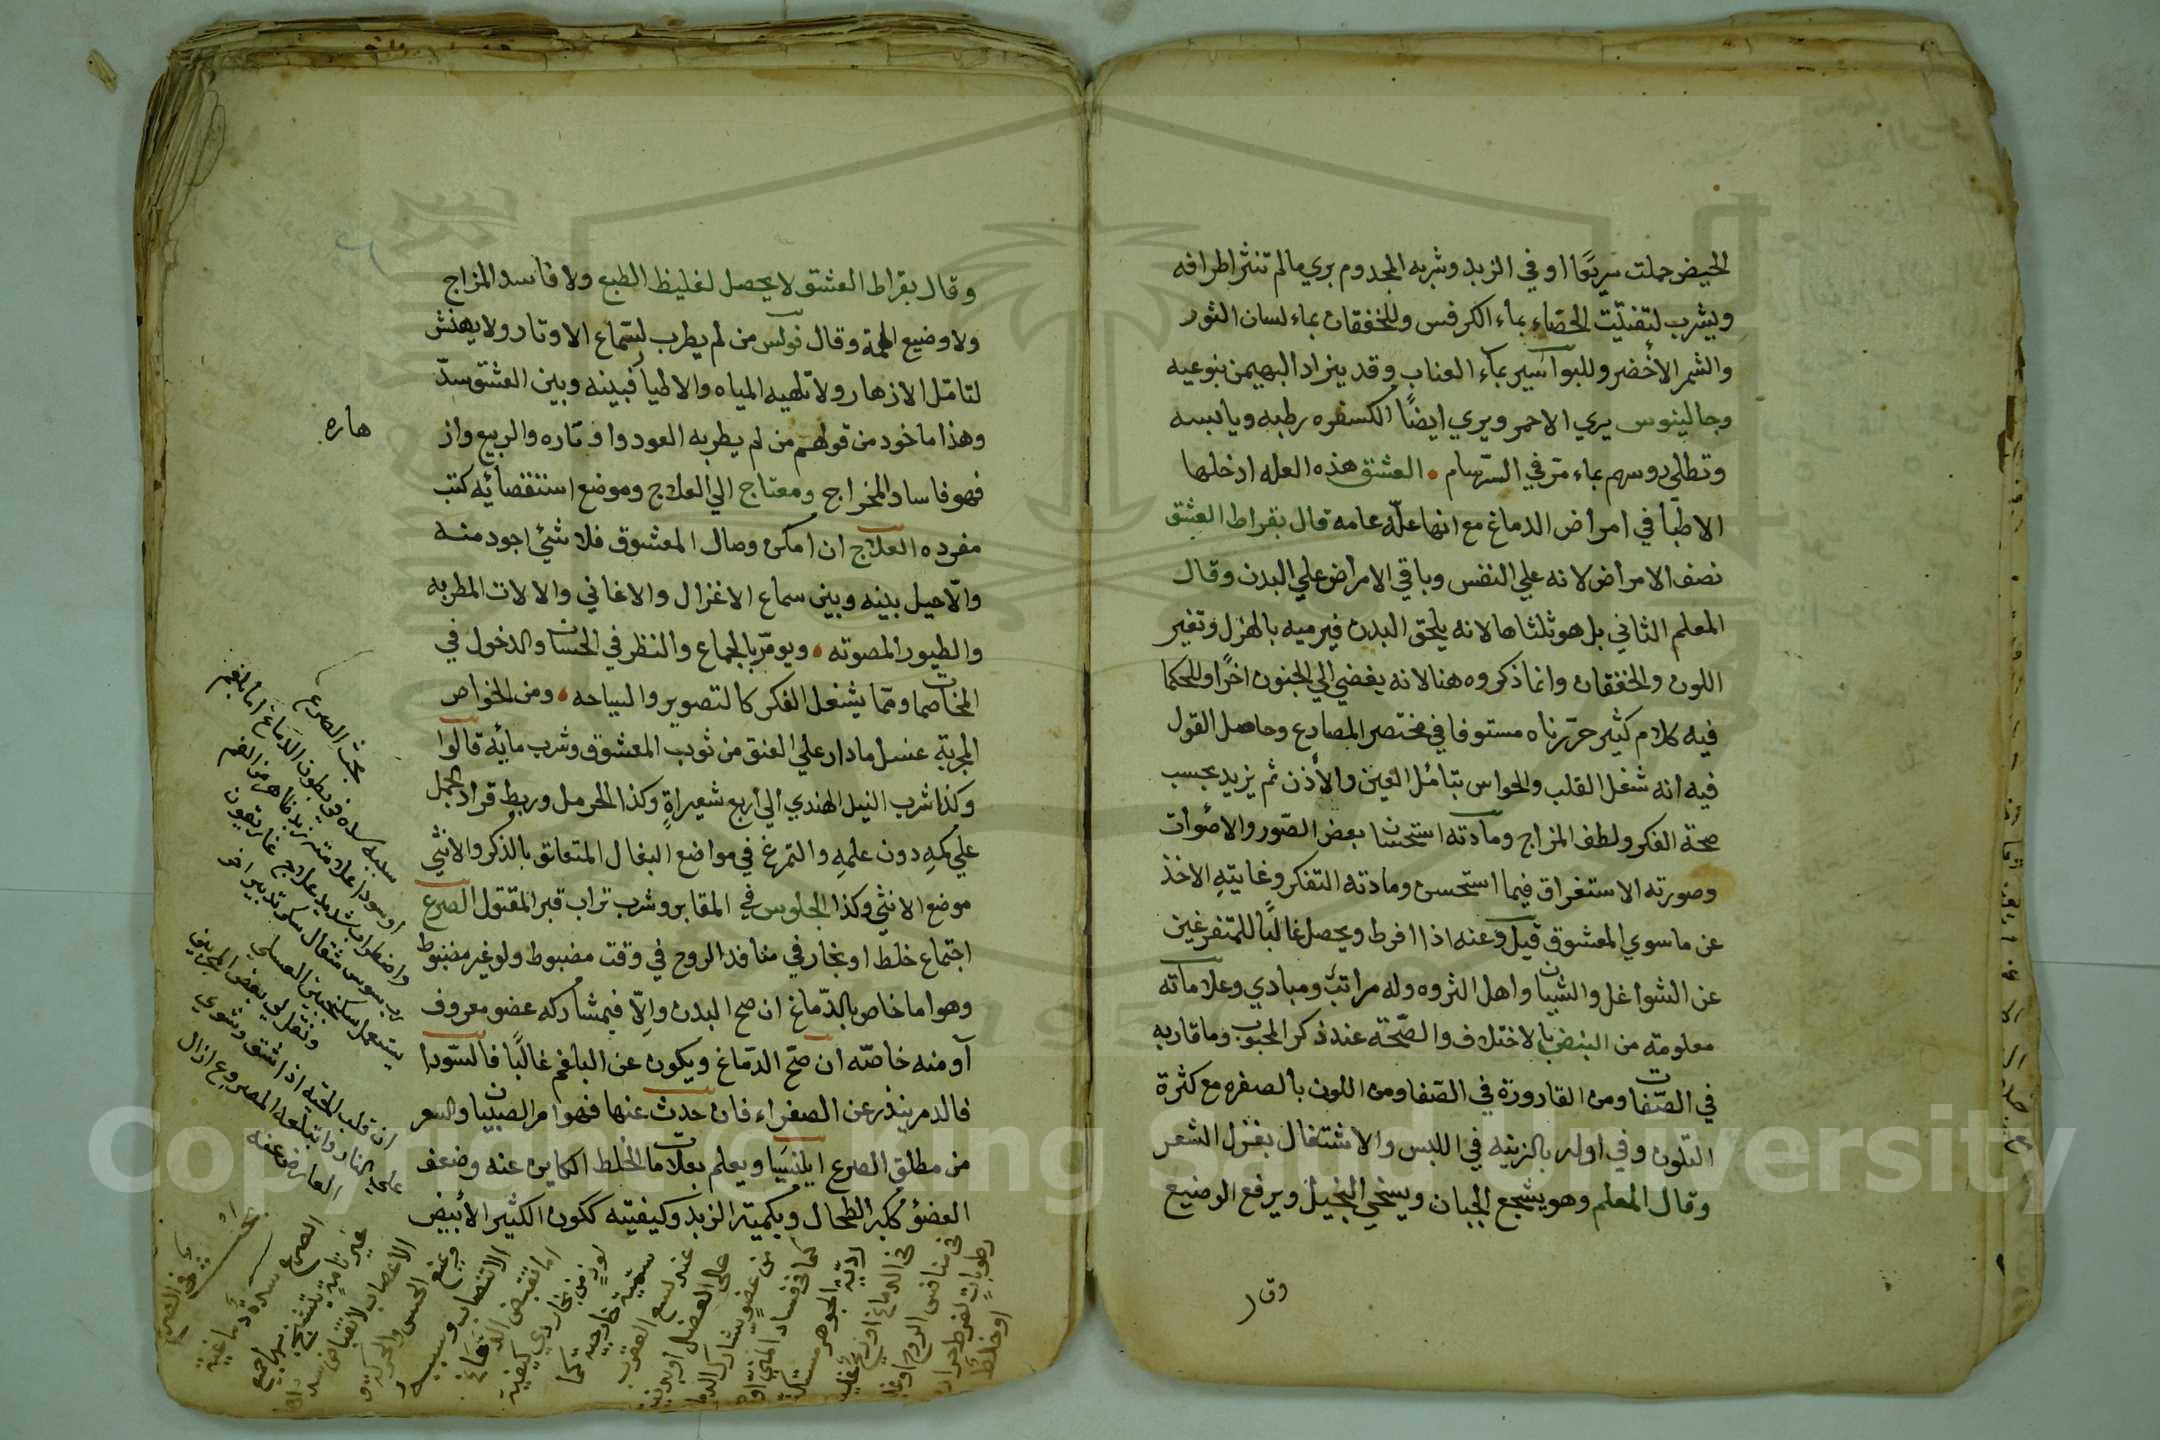 الحيض حملت سريعًا او في الزبد وشربه المجدوم بري مالم تنثر اطرافه
ويشرب لتفتيت الحصاء بماء الكرفس وللخفقان بماء لسان الثور
والشمر الأخضر وللبواسير بماء العناب وقد يزاد البهيمن بنوعيه
وجالينوس يري الاحمر ويري ايضًا الكسفره رطبه ويابسه
وتطلي روسهم بماء مر في السرسام • العشق هذه العله ادخلها
الاطبا في امراض الدماغ مع انها علّه عامه قال بقراط العشق
نصف الامراض لانه علي النفس وباقي الامراض علي البدن وقال
المعلم الثاني بل هو ثلثاها لانه يلحق البدن فيرميه بالهزل وتغير
اللون والخفقان وانما ذكروه هنا لانه يفضي الي الجنون اخرًا وللحكما
فيه كلام كثير حرّرناه مستوفا في مختصر المصارع وحاصل القول
فيه انه شغل القلب والحواس بتامل العين والأذن ثم يزيد بحسب
صحة الفكر ولطف المزاج ومادته استحسان بعض الصّور والاصوات
وصورته الاستغراق فيما استحسن ومادته التفكر وغايتهِ الاخذ
عن ما سوي المعشوق قيل وعنه اذا افرط ويحصل غالبًا للمتفرغين
عن الشواغل والشبان واهل الثروه وله مراتب ومبادي وعلاماته
معلومة من النبض بالاختلاف والصّحة عند ذكر المحبوب وما قاربه
في الصّفات ومن القارورة في الصّفا ومن اللون بالصفره مع كثرة
التلون وفي اوله بالزينه في اللبس والاشتغال بغزل الشعر
وقال المعلم وهو يشجع الجبان ويسخي البخيل ويرفع الوضيع
وقال
وقال بقراط العشق لا يحصل لغليظ الطبع ولا فاسد المزاج
ولا وضيع الهمة وقال فولس من لم يطرب لسماع الاوتار ولا يهش
لتامّل الازهار ولا تلهيه المياه والاطيار فبينه وبين العشق سدّ
وهذا ماخود من قولهم من لم يطربه العود واوتاره والربيع واز
هاره
فهو فاساد المخراج ومعتاج الي العلاج وموضع استقصائه كتب
مفرده العلاج ان امكن وصال المعشوق فلا شئي اجود منه
والّا حيل بينه وبين سماع الاغزال والاغاني والالات المطربه
والطيور المصوته • ويومر بالجماع والنظر في الحسنات والدخول في
المخاصمات وممّا يشغل الفكر كالتصوير والسياحه • ومن الخواص
المجربة غسل مادار علي العنق من ثوب المعشوق وشرب مائه قالوا
وكذا شرب النيل الهندي الي اربع شعيراةٍ وكذا الحرمل وربط قراد الجمل
علي كمهِ دون علمهِ والتمرغ في مواضع البغال المتعانق بالذكر والانثي
موضع الانثي وكذا الجلوس في المقابر وشرب تراب قبر المقتول الصرع
اجتماع خلط او بخار في منافذ الروح في وقت مضبوط ولو غير مضبوط
وهو اما خاص بالدّماغ ان صح البدن والّا فبمشاركه عضو معروف
آو منه خاصّه ان صحّ الدّماغ ويكون عن البلغم غالبًا فالسّودا
فالدمر ينذر عن الصفراء فان حدث عنها فهو امر الصبيان والسعر
من مطلق الصرع ايلنبسيا ويعلم بعلامات الخلط الكاين عنه وضعف
العضؤ كبر الطحال وبكمية الزبد وكيفيته ككون الكثير الأبيض
بحث الصرع
سببه سدة في بطون الدماغ اما بلغم
او سودا علامته زبد ظاهر من الفم
واضطراب شديد علاج غاريقون
رب سوس مثقال سكر تدبير اخر
يستعمل سكنجبين العسلي
ونقل لي بعض المجربين
ان قلب اللحية اذا شق وشوي
علي النار وابتلعه المصروع ازال
العارض عنه
الصرع سدة دماغية
غير تامة يتشنج بها جميع
الأعصاب لانقباض
ويمنع الحس والحركة و
الانتصاب وسببه
اما تقبض الدماغ
من بخار ردي كيفية
سمّية خارجية كما
عند لسع العقرب
على العضل او
من عضو يشارك
كما في فساد المني او
ردية الجوهر
في الدماغ او ريح غليظ
في منافذ الروح او
رطوبات لفرط حرارة
او خلط